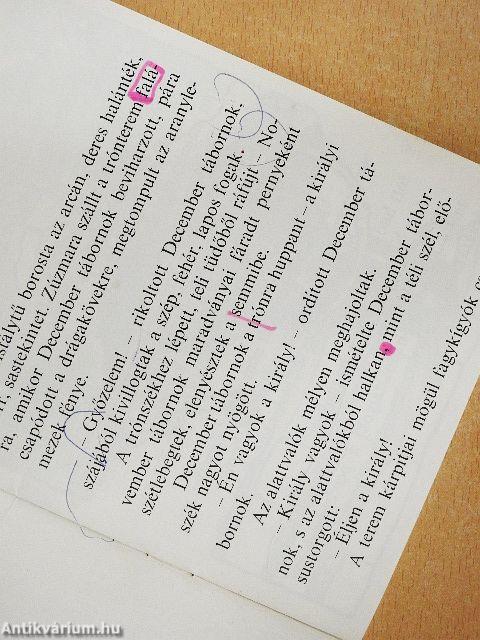 borosta az arcán, deres halánték,
sastekintet. Zúzmara szállt a trónterem falá-
ra, amikor December tábornok beviharzott, pára
csapódott a drágakövekre, megtompult az aranyle-
mezek fénye.
– Győzelem! – rikoltott December tábornok,
szájából kivillogtak a szép, fehér, lapos fogak.
A trónszékhez lépett, teli tüdőből ráfújt – No-
vember tábornok maradványai fáradt pernyeként
szétlebegtek, elenyésztek a semmibe.
December tábornok a trónra huppant – a királyi
szék nagyot nyögött.
– Én vagyok a király! – ordított December tá-
bornok.
Az alattvalók mélyen meghajoltak.
– Király vagyok – ismételte December tábor-
nok, s az alattvalókból halkan, mint a téli szél, elő-
sustorgott:
– Éljen a király!
A terem kárpitjai mögül fagykígyók
Antikvárium.hu